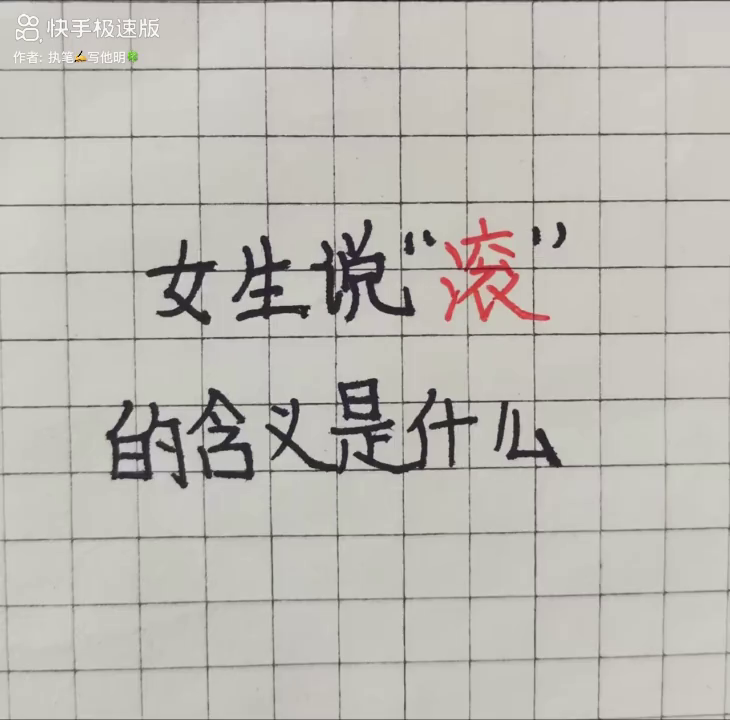 快手极速版
作者: 执笔✍写他明🍀
女生说“滚”
的含义是什么